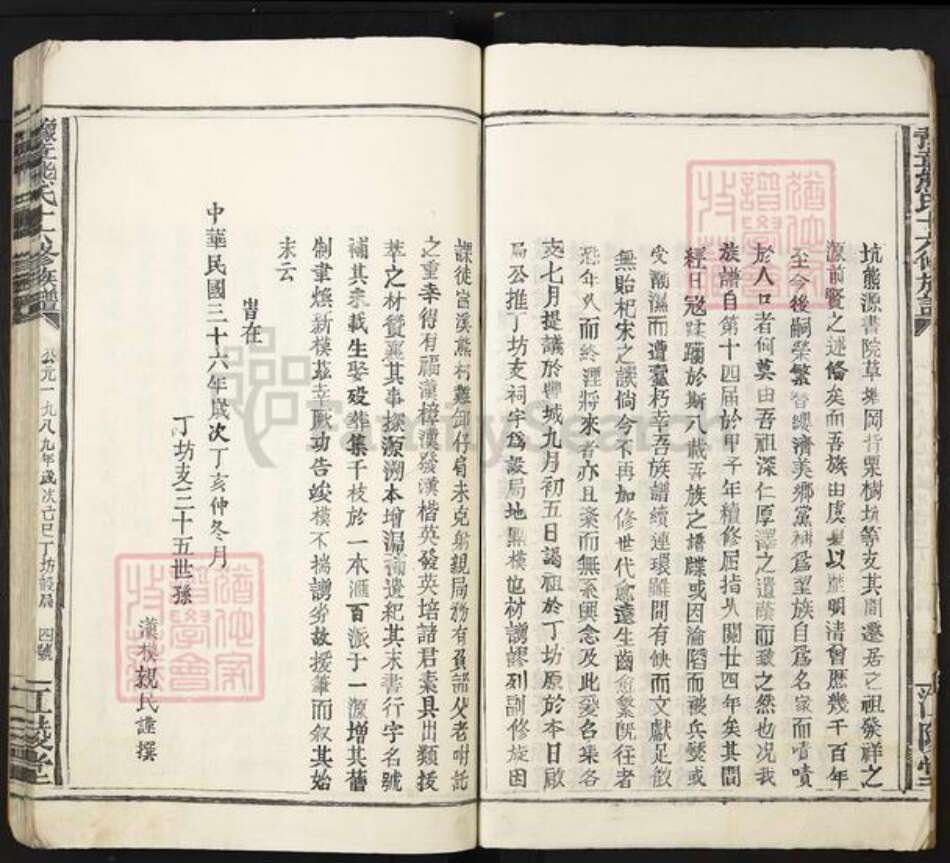 豫章熊氏十六修族譜
江陵堂
坑熊源書院草堆岡背栗樹坑等支其間遷居之祖發祥之
源前賢之述備矣而吾族由虞夏以歷明清曾歷幾千百年
至今後嗣榮繁晉纓濟美鄉黨稱爲望族自爲名家而嘖嘖
於人口者何莫由吾祖深仁厚澤之遺蔭而致之然也况我
族譜自第十四届於甲子年續修屈指月關廿四年矣其間
經日寇蹂躪於斯八載吾族之譜牒或因淪陷而被兵燹或
受潮濕而遭蠹朽幸吾族譜續連環雖間有缺而文獻足飲
無貽杞宋之譏倘今不再加修世代愈遠生齒愈繁既往者
恐年久而終湮將來者亦且紊而無系興念及此爰名集各
支七月提議於豐城九月初五日謁祖於丁坊原於本日啟
局公推丁坊支祠宇爲設局地點模也材謭謬列副修旋因
課徒富溪熊村難卸仔肩未克躬親局務有負諸父老咐託
之重幸得有福漢樟漢發漢楷英發英培諸君素具出類拔
萃之材贊襄其事探源溯本增漏補遺紀其末書行字名號
補其未載生娶殁葬集千枝於一本滙百派于一源增其舊
制聿煥新模玆幸厥功告竣模不揣謭劣故援筆而叙其始
末云
旹在
中華民國三十六年歲次丁亥仲冬月
丁坊支三十五世孫
漢模親民謹撰
豫章熊氏十六修族譜
公元一九八九年歲次己巳丁坊設局
四號
江陵堂
FamilySearch